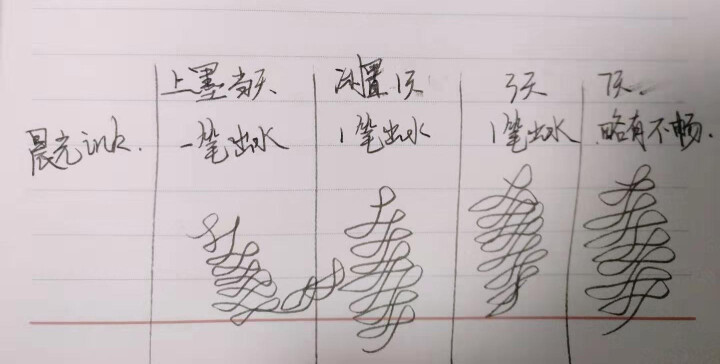 上墨当天 闲置1天 3天 7天.
晨光ink. 一笔出水 1笔出水 1笔出水 略有不畅.